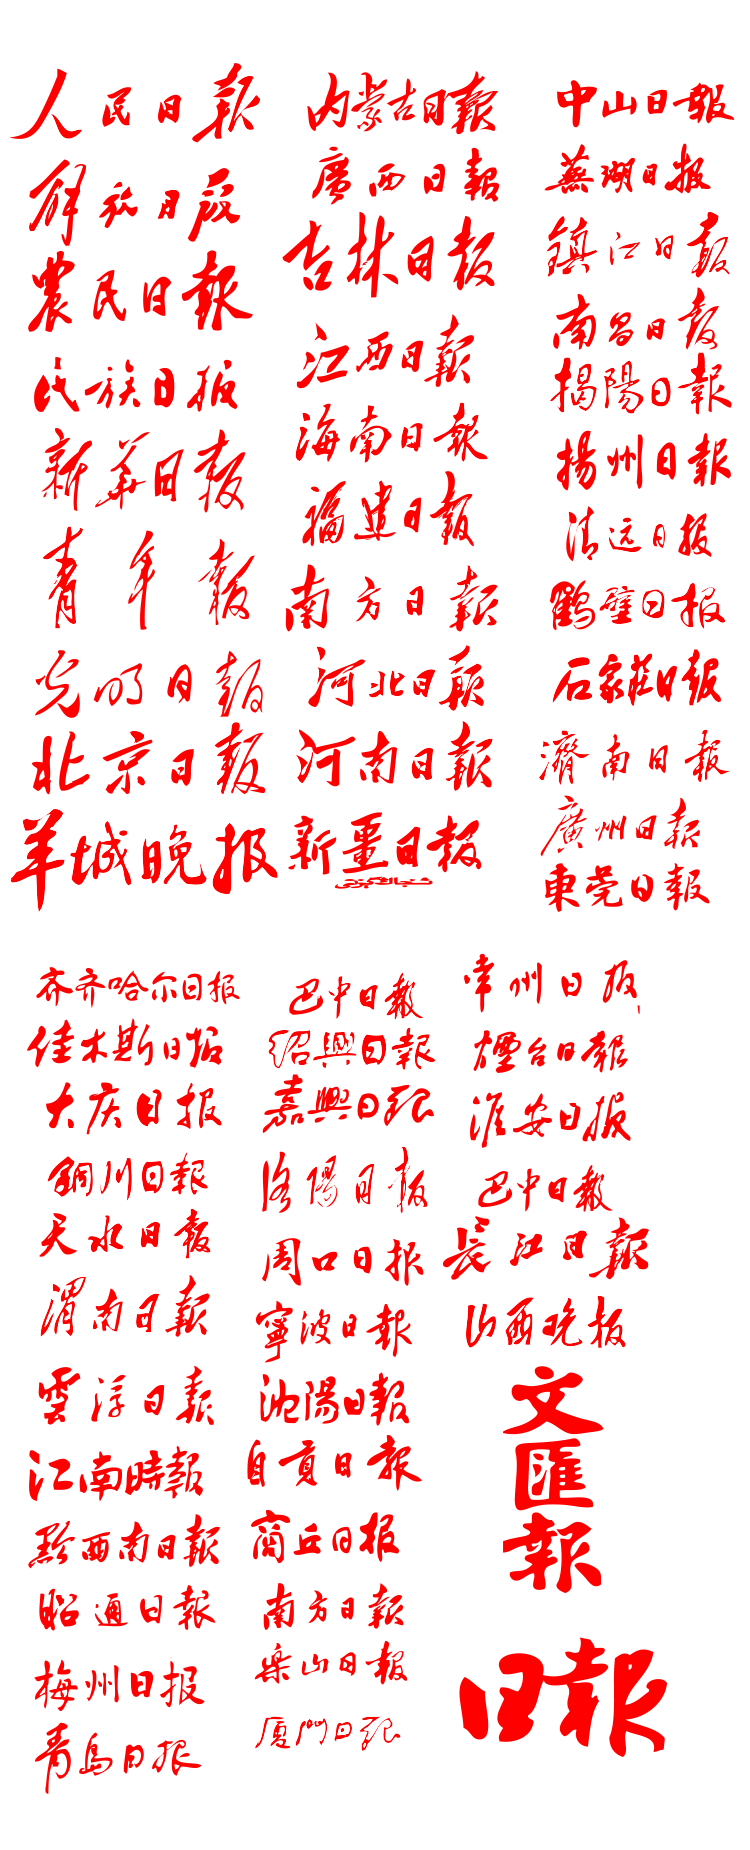 人民日報
解放日报
農民日報
民族日报
新華日報
青年報
光明日報
北京日報
羊城晚报
内蒙古日報
廣西日報
吉林日报
江西日報
海南日報
福建日報
南方日報
河北日報
河南日報
新疆日報
中山日報
蕪湖日报
鎮江日報
南昌日報
揭陽日報
揚州日報
清远日报
鹤壁日报
石家莊日報
濟南日报
廣州日報
東莞日報
齐齐哈尔日报
佳木斯日报
大庆日报
銅川日報
天水日報
渭南日報
雲浮日報
江南時報
黔西南日報
昭通日報
梅州日报
青岛日报
巴中日報
紹興日報
嘉興日报
洛陽日報
周口日报
寧波日報
沈陽日報
自貢日報
商丘日报
南方日報
乐山日報
厦门日报
常州日报
煙台日報
淮安日报
巴中日報
長江日報
山西晚报
文匯報
日報